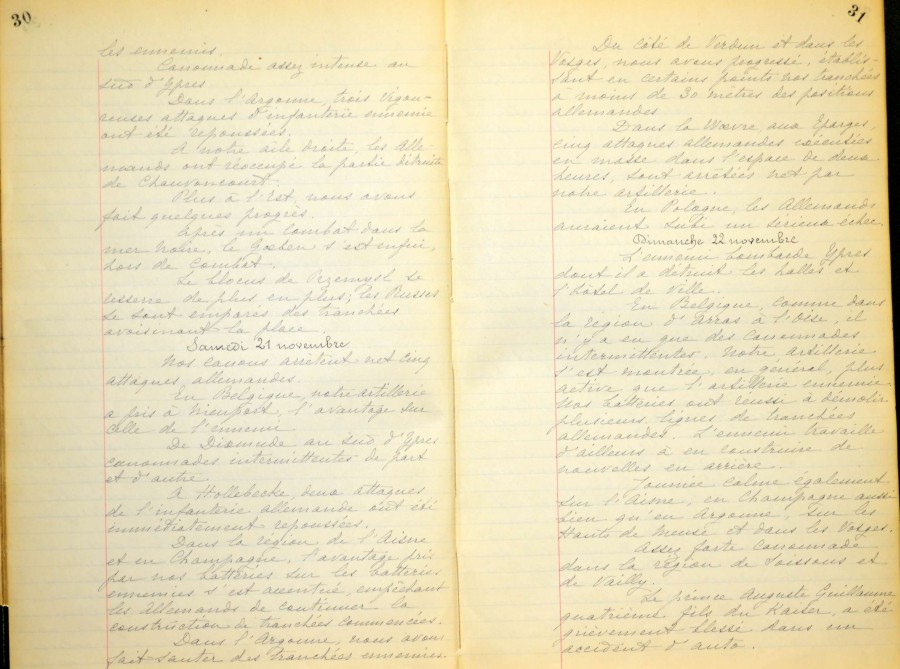 30
les ennemis.
Canonnade assez intense au
sud d'Ypres
Dans l'Argonne, trois vigou-
reuses attaques d'infanterie ennemie
ont été repoussées.
A notre aile droite, les Alle
mands ont réoccupé la partie détruite
de Chauvoncourt.
Plus à l'Est, nous avons
fait quelques progrès.
Après un combat dans la
mer Noire, le Goeben s'est enfui,
hors de combat.
Le blocus de Przemysl se
resserre de plus en plus; les Russes
se sont emparés des tranchées
avoisinant la place.
Samedi 21 novembre
Nos canons arrêtent net cinq
attaques allemandes.
En Belgique, notre artillerie
a pris à Nieuport, l'avantage sur
celle de l'ennemi
De Dixmude au sud d'Ypres
canonnades intermittentes de part
et d'autre
A Hollebecke, deux attaques
de l'infanterie allemande ont été
immédiatement repoussées.
Dans la région de l'Aisne
et en Champagne, l'avantage pris
par nos batteries sur les batteries
ennemies s'est accentué, empêchant
les Allemands de continuer la
construction de tranchées commencées.
Dans l'Argonne, nous avons
fait sauter des tranchées ennemies.
31
Du côté de Verdun et dans les
Vosges, nous avons progressé, établis-
sant en certains points nos tranchées
à moins de 30 mètres des positions
allemandes
Dans la Woëvre, aux Eparges,
cinq attaques allemandes exécutées
en masse dans l'espace de deux
heures, sont arrêtées net par
notre artillerie.
En Pologne, les Allemands
auraient subi un sérieux échec.
Dimanche 22 novembre
L'ennemi bombarde Ypres
dont il a détruit les halles et
l'hôtel de Ville.
En Belgique, comme dans
la région d'Arras à l'Oise, il
n'y a eu que des canonnades
intermittentes. Notre artillerie
s'est montrée, en général, plus
active que l'artillerie ennemie.
Nos batteries ont réussi à démolir
plusieurs lignes de tranchées
allemandes. L'ennemi travaille
d'ailleurs à en construire de
nouvelles en arrière.
Journée calme également
sur l'Aisne, en Champagne aussi
bien qu'en Argonne, sur les
Hauts de Meuse et dans les Vosges.
Assez forte canonnade
dans la région de Soissons et
de Vailly.
Le prince Auguste Guillaume
quatrième fils du Kaiser, a été
grièvement blessé dans un
accident d'auto.